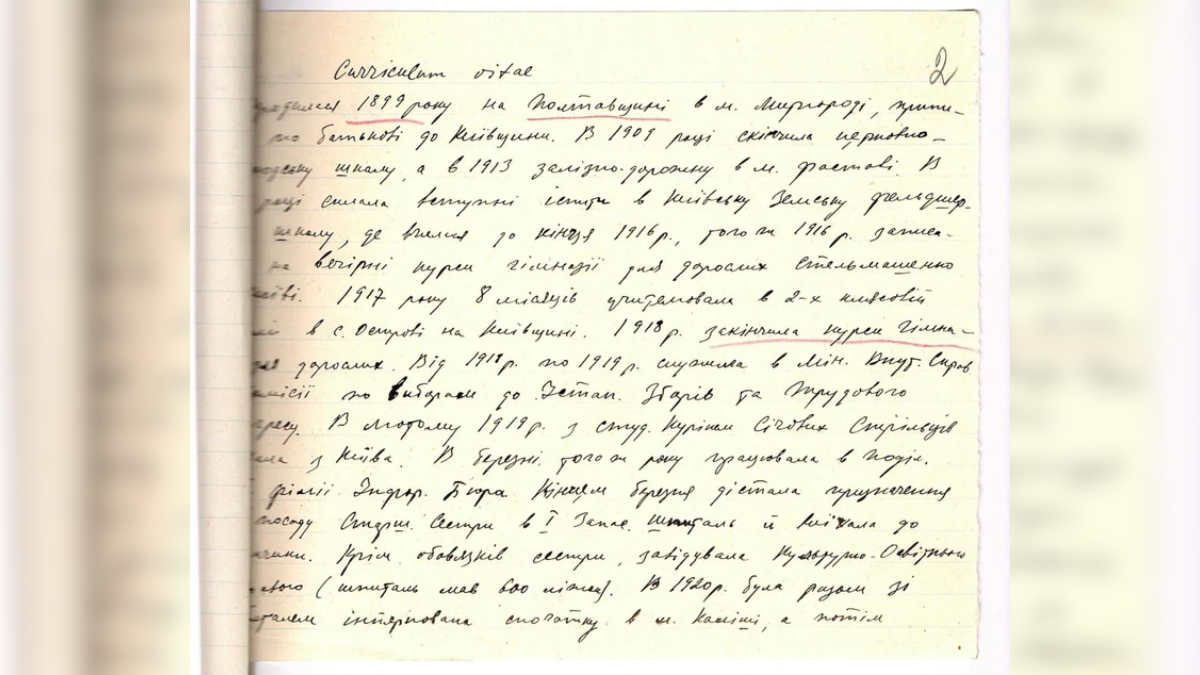 Curriculum vitae
2
1899 року на Полтавщині в м. Миргороді, припи-
по батькові до Київщини. В 1909 році скінчила церковно-
школу, а в 1913 залізно-дорожну в м. Фастові. В
році склала вступні іспити в Київську Земську фельдшер.
школу, де вчилася до кінця 1916 р., того ж 1916 р. записа-
на вечірні курси гімназії для дорослих Стельмашенко
1917 року 8 місяців учителювала в 2-х класовій
в с. Острові на Київщині. 1918 р. закінчила курси гімна-
дорослих. Від 1918 р. по 1919 р. служила в Мін. Внут. Справ
по виборам до Устан. Зборів та Трудового
В лютому 1919 р. з студ. Куріньом Січових Стрільців
з Київа. В березні того ж року працювала в Поділ.
філії Інфор. Бюра. Кінцем березня дістала призначення
посаду Старш. Сестри в І Запас. шпиталь й виїхала до
Крім обовязків сестри, завідувала Культурно-Освітнього
(шпиталь мав 600 ліжок). В 1920 р. була разом зі
інтернована спочатку в м. Каліші, а потім